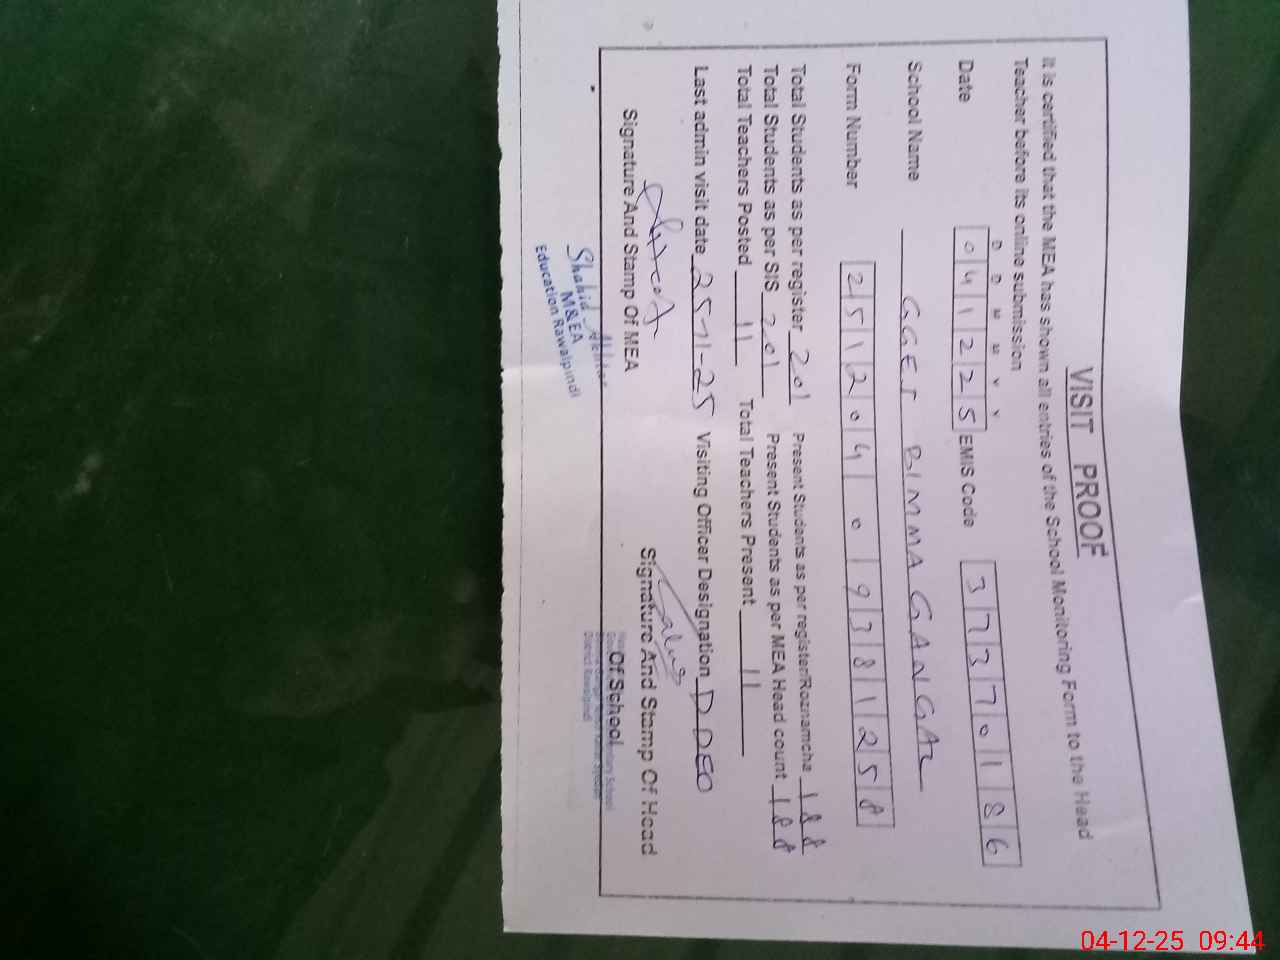 VISIT PROOF
It is certified that the MEA has shown all entries of the School Monitoring Form to the Head
Teacher before its online submission
D D M M Y Y
Date 0 4 1 2 2 5 EMIS Code 3 7 3 7 0 1 8 6
School Name GGES BIMMA GANGAL
Form Number 2 5 1 2 0 4 0 1 9 3 8 1 2 5 8
Total Students as per register 201 Present Students as per register/Roznamcha 188
Total Students as per SIS 201 Present Students as per MEA Head count 188
Total Teachers Posted 11 Total Teachers Present 11
Last admin visit date 25-11-25 Visiting Officer Designation DDEO
Signature And Stamp Of MEA Signature And Stamp Of Head
Of School
Shahid Akhtar
M&EA
Education Rawalpindi
District Rawalpindi
04-12-25 09:44